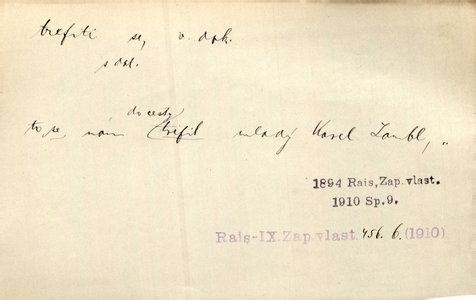 trefiti se, v. dok.
s dat.
do cesty
to se, nám trefil mladý Karel Loubl, „
1894 Rais, Zap. vlast.
1910 Sp. 9.
Rais-IX. Zap. vlast. 456. 6. (1910)